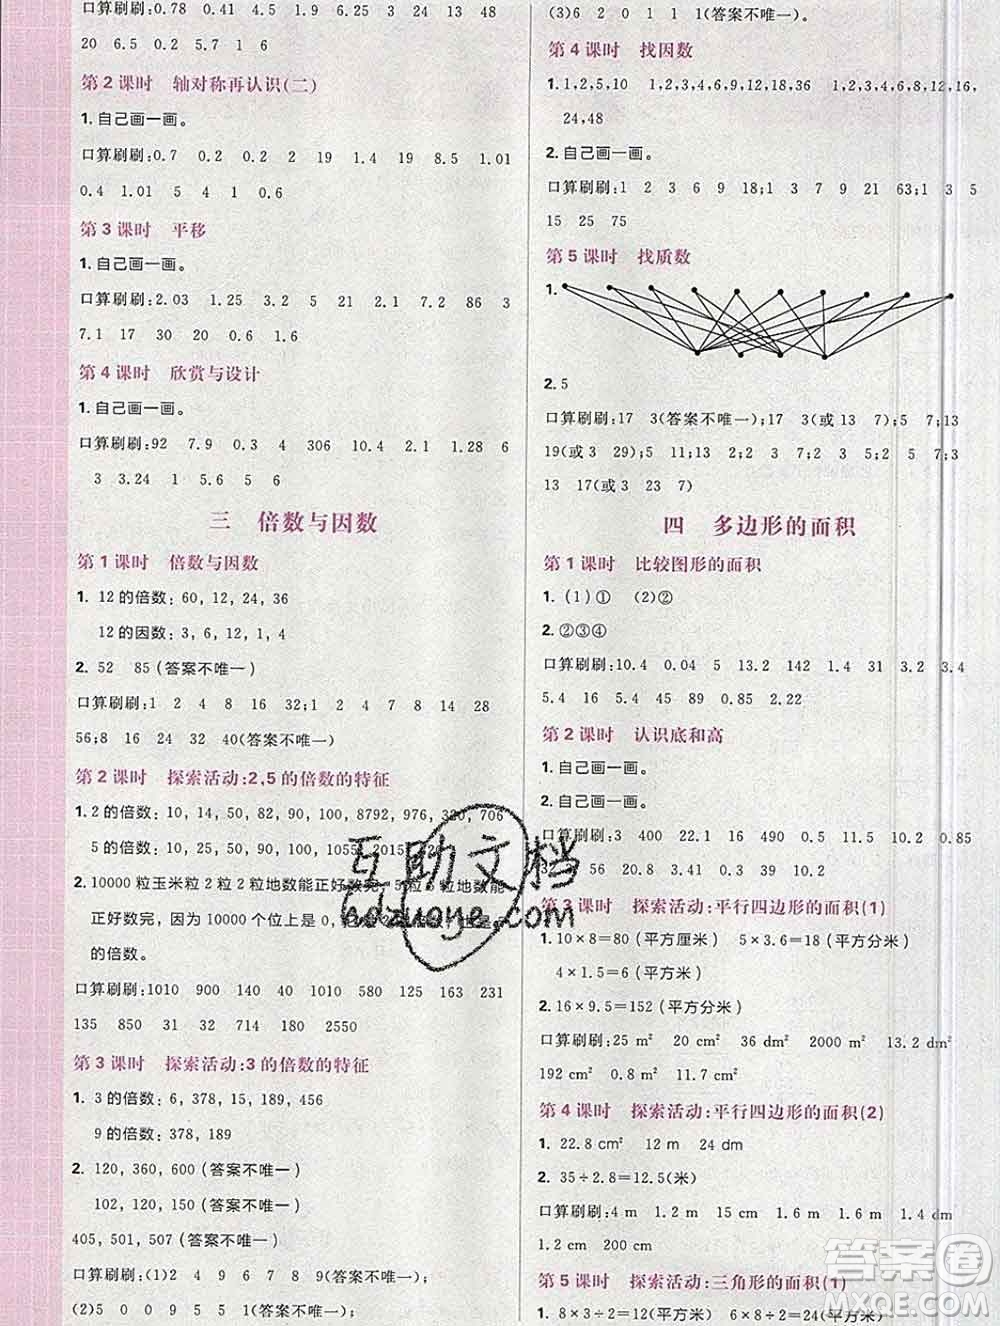 口算刷刷:0.78 0.41 3.1 0.04 4 1 13 48
20 6.5 0.2 5.7 1 6
第2课时 轴对称再认识(二)
1.自己画一画。
口算刷刷:0.7 0.2 0.2 2 19 1.4 19 1.01
0.4 1.01 5 1 0.6
第3课时 平移
1.自己画一画。
口算刷刷:2.03 1.25 3.2 5 21 2.1 7.2 86 3
7.1 17 30 20 0.6 1.6
第4课时 欣赏与设计
1.自己画一画。
口算刷刷:92 7.9 0.3 4 306 10.4 2.1 1.28 6
3 3.24 1 5.6 5
三 倍数与因数
第1课时 倍数与因数
1. 12的倍数: 60, 12, 24, 36
12的因数: 3, 6, 12, 1, 4
2. 52 85(答案不唯一)
口算刷刷:1 2 4 8 16 32;1 2 4 7 14 28
56;8 16 24 32 40(答案不唯一)
第2课时 探索活动:2,5的倍数的特征
1.2的倍数: 10, 14, 50, 82, 90, 100, 8792, 976, 320, 706
5的倍数: 10, 25, 50, 90, 100, 1055, 2015, 320
2.10000粒玉米粒2粒2粒地数能正好数完, 5粒5粒地数能
正好数完, 因为10000个位上是0,
的倍数。
口算刷刷:1010 900 140 40 1010 16 163 231
135 850 31 32 714 180 2550
第3课时 探索活动:3的倍数的特征
1. 3的倍数: 6, 378, 15, 189, 456
9的倍数: 378, 189
2. 120, 360, 600(答案不唯一)
102, 120, 150(答案不唯一)
405, 501, 507(答案不唯一)
口算刷刷:(1)2 4 9 6 7 8 9(答案不唯一);
(2)5 0 0 9 5 5 1(答案不唯一);
(3)6 2 0 1 1 1(答案不唯一)。
第4课时 找因数
1. 1,2,5,10 1,2,3,4,6,9,12,18,36 1,2,3,4,6,8,12,16,
24,48
2.自己画一画。
口算刷刷:1 2 3 6 9 18;1 3 7 9 21 63;1 3 5
15 25 75
第5课时 找质数
1.
2.5
口算刷刷:17 3(答案不唯一);17 3(或13 7);5 7;13
19(或3 29);5 11;13 2;2 3 7;2 3 3 7;3
13 17(或3 23 7)
四 多边形的面积
第1课时 比较图形的面积
1. (1)① (2)②
2. ②③④
口算刷刷:10.4 0.04 5 13.2 142 1.4 31 3.2 3.4
5.4 16 4.5 89 0.85 2.22
第2课时 认识底和高
1.自己画一画。
2.自己画一画。
口算刷刷:3 400 22.1 16 490 0.5 11 10.2 0.85
56 20.8 3.4 30 39 10.2
第3课时 探索活动:平行四边形的面积(1)
1.10×8=80(平方厘米) 5×3.6=18(平方米)
4×1.5=6(平方米)
2.16×9.5=152(平方分米)
口算刷刷:25 m² 20 cm² 36 dm² 42 m² 13.2 cm²
192 cm² 8 m² 11.7 cm²
第4课时 探索活动:平行四边形的面积(2)
1. 22.8 cm² 12 m 24 dm
2. 35÷2.8=12.5(米)
口算刷刷:4 m 12 m 15 cm 1.6 m 1.6 m 1.4 dm
1.2 cm 200 cm
第5课时 探索活动:三角形的面积(1)
1. 8×3÷2=12(平方米) 6×8÷2=24(平方米)
互助文档
6dzuoye.com
答案圈
MXQE.COM